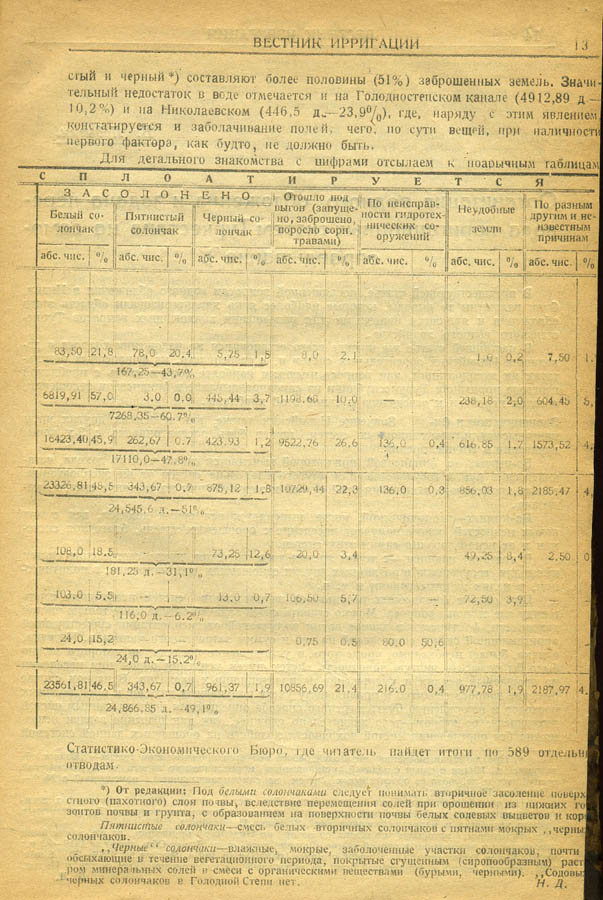 ВЕСТНИК ИРРИГАЦИИ 13
стый и черный *) составляют более половины (51%) заброшенных земель. Значи-
тельный недостаток в воде отмечается и на Голодностепском канале (4912,89 д.—
10,2%) и на Николаевском (446,5 д.—23,9%), где, наряду с этим явлением,
констатируется и заболачивание полей, чего, по сути вещей, при наличности
первого фактора, как будто, не должно быть.
Для детального знакомства с цифрами отсылаем к поарычным таблицам
С П Л О А Т И Р У Е Т С Я
ЗАСОЛОНЕНО
Белый со-
лончак
Пятнистый
солончак
Черный со-
лончак
Отошло под
выгон (запуще-
но, заброшено,
поросло сорн.
травами)
По неисправ-
ности гидротех-
нических со-
оружений
Неудобные
земли
По разным
другим и не-
известным
причинам
абс. чис. % абс. чис. % абс. чис. % абс. чис. % абс. чис. % абс. чис. % абс. чис. %
83,50 21,8 78,0 20.4 5,75 1,5 8,0 2.1 1.0 0,2 7,50 1.
167,25—43,7%
6819,91 57,0 3.0 0.0 445,44 3,7 1198.68 10,0 — 238,18 2,0 604.45 5,
7268,35—60.7%
16423,40 45,9 262,67 0.7 423,93 1,2 9522,76 26,6 136,0 0,4 616.85 1.7 1573,52 4,
17110,0—47,8%
23326,81 48,5 343,67 0,7 875,12 1,8 10729,44 22,3 136,0 0,3 856,03 1,8 2185,47 4,
24,545,6 д.—51%
108,0 18.5 — — 73,25 12,6 20,0 3,4 — — 49,25 8,4 2.50 0
181,25 д.—31,1%
103,0 5,5 — — 13,0 0,7 106,50 5,7 — — 72,50 3,9 —
116,0 д.—6.2%
24,0 15,2 — — — — 0,75 0.5 80,0 50,6
24,0 д.—15.2%
23561,81 46,5 343,67 0,7 961,37 1,9 10856,69 21.4 216.0 0,4 977,78 1,9 2187,97 4.
24,866.85 д.—49,1%
Статистико-Экономического Бюро, где читатель найдет итоги по 589 отдельн
отводам.
*) От редакции: Под белыми солончаками следует понимать вторичное засоление поверх
стного (пахотного) слоя почвы, вследствие перемещения солей при орошении из нижних го
зонтов почвы и грунта, с образованием на поверхности почвы белых солевых выцветов и кор
Пятнистые солончаки—смесь белых вторичных солончаков с пятнами мокрых ,,черны
солончаков.
,,Черные“ солончаки—влажные, мокрые, заболоченные участки солончаков, почти
обсыхающие в течение вегетационного периода, покрытые сгущенным (сиропообразным) раст
ром минеральных солей в смеси с органическими веществами (бурыми, черными). ,,Содовы
черных солончаков в Голодной Степи нет. Н. Д.